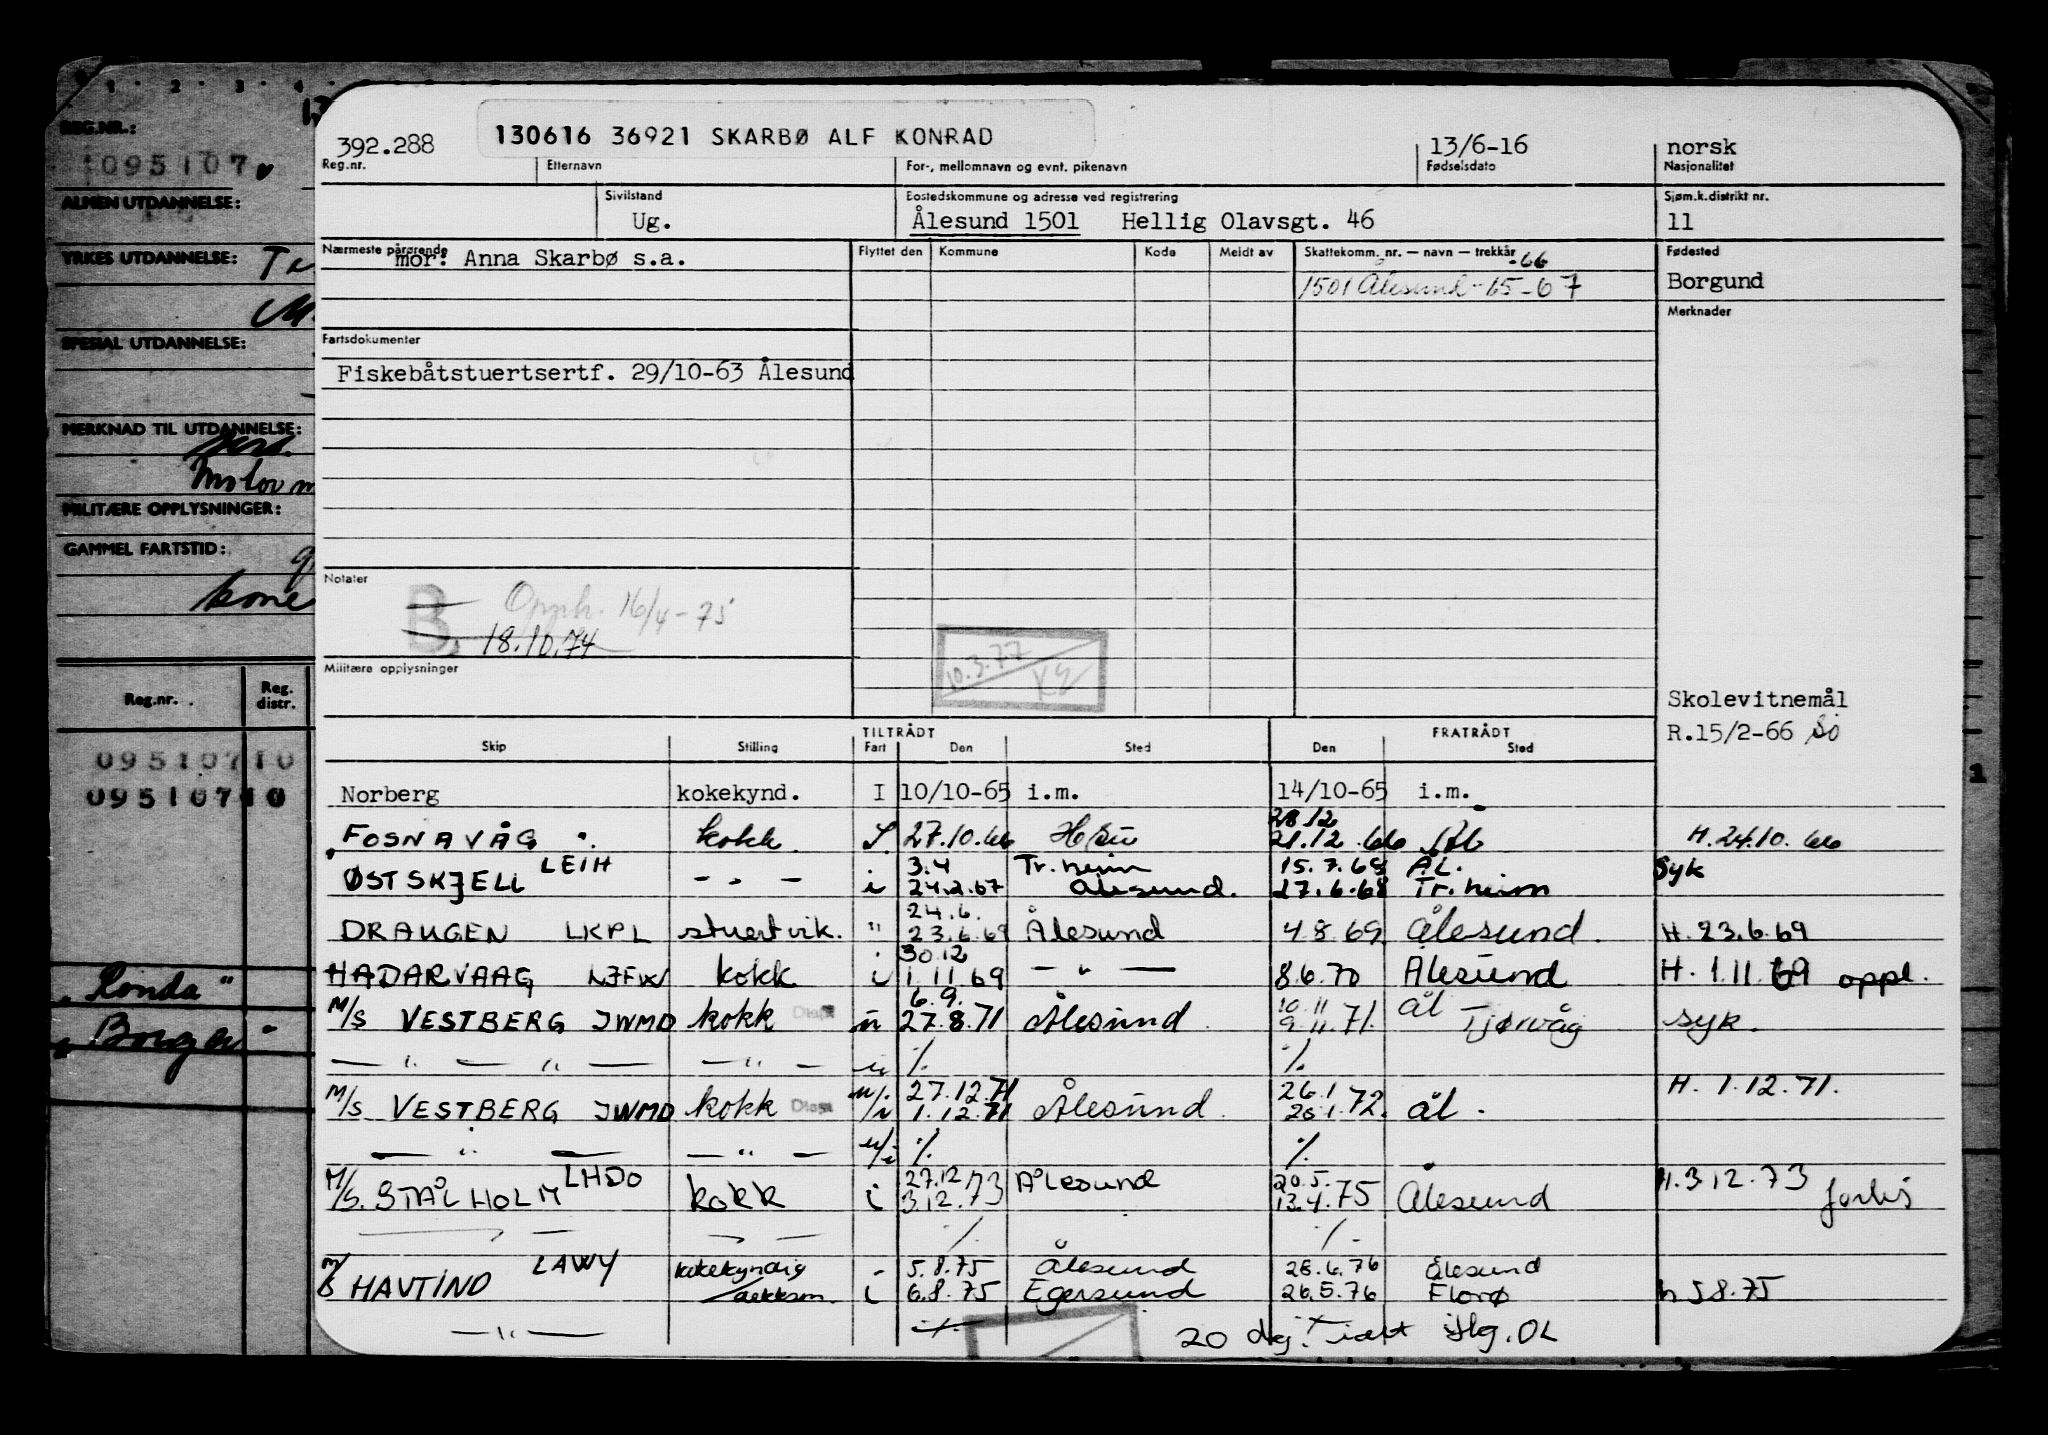 REG.NR.:
1095107
ALMEN UTDANNELSE:
YRKES UTDANNELSE:
SPESIAL UTDANNELSE:
MERKNAD TIL UTDANNELSE:
MILITÆRE OPPLYSNINGER:
GAMMEL FARTSTID:
Reg.nr. Reg. distr.
09510710
09510710
"Ronda"
392.288 130616 36921 SKARBØ ALF KONRAD 13/6-16 norsk
Reg.nr. Etternavn For-, mellomnavn og evnt. pikenavn Fødselsdato Nasjonalitet
Sivilstand Bostedskommune og adresse ved registrering Sjøm.k.distrikt nr.
Ug. Ålesund 1501 Hellig Olavsgt. 46 11
Nærmeste pårørende Flyttet den Kommune Kode Meldt av Skattekomm. nr. — navn — trekkår Fødested
mor: Anna Skarbø s.a. -66
1501 Ålesund -65-67 Borgund
Merknader
Fartsdokumenter
Fiskebåtstuertsertf. 29/10-63 Ålesund
Notater
B. Opph. 16/4-75
18.10.74
10.3.77
Militære opplysninger
Skolevitnemål
R.15/2-66
TILTRÅDT FRATRÅDT
Skip Stilling Fart Den Sted Den Sted
Norberg kokekynd. I 10/10-65 i.m. 14/10-65 i.m.
28.12
FOSNAVÅG kokk 27.10.66 21.12.66 H.24.10.66
LEIH 3.4 Tr.heim 15.7.68 ÅL. Syk
ØSTSKJELL - " - i 24.2.67 Ålesund. 27.6.68 Tr.heim
24.6.
DRAUGEN LKPL stuertvik. " 23.6.69 Ålesund 4.8.69 Ålesund. H. 23.6.69
30.12
HADARVAAG kokk i 1.11.69 - " - 8.6.70 Ålesund H. 1.11.69 oppl.
6.9. 10.11 ål
M/S VESTBERG JWMD kokk 27.8.71 Ålesund 9.11.71. Tjørvåg syk.
— " — " — — " — ./. ./.
27.12.71 26.1 H. 1.12.71.
M/S VESTBERG JWMD kokk 1.12.71 Ålesund 72. ål.
— " — — " — u/i ./. ./.
LHDO 27.12 Ålesund 20.5. H.3.12.73
M/S. STÅLHOLM kokk i 3.12.73 13.4.75 Ålesund
./. ./.
LAWY kokekyndig 5.8.75 Ålesund 28.6.76 Ålesund
M/S HAVTIND /dekksm. i 6.8.75 Egersund 26.5.76 Florø h 5.8.75
— " — ./. 20 dg.